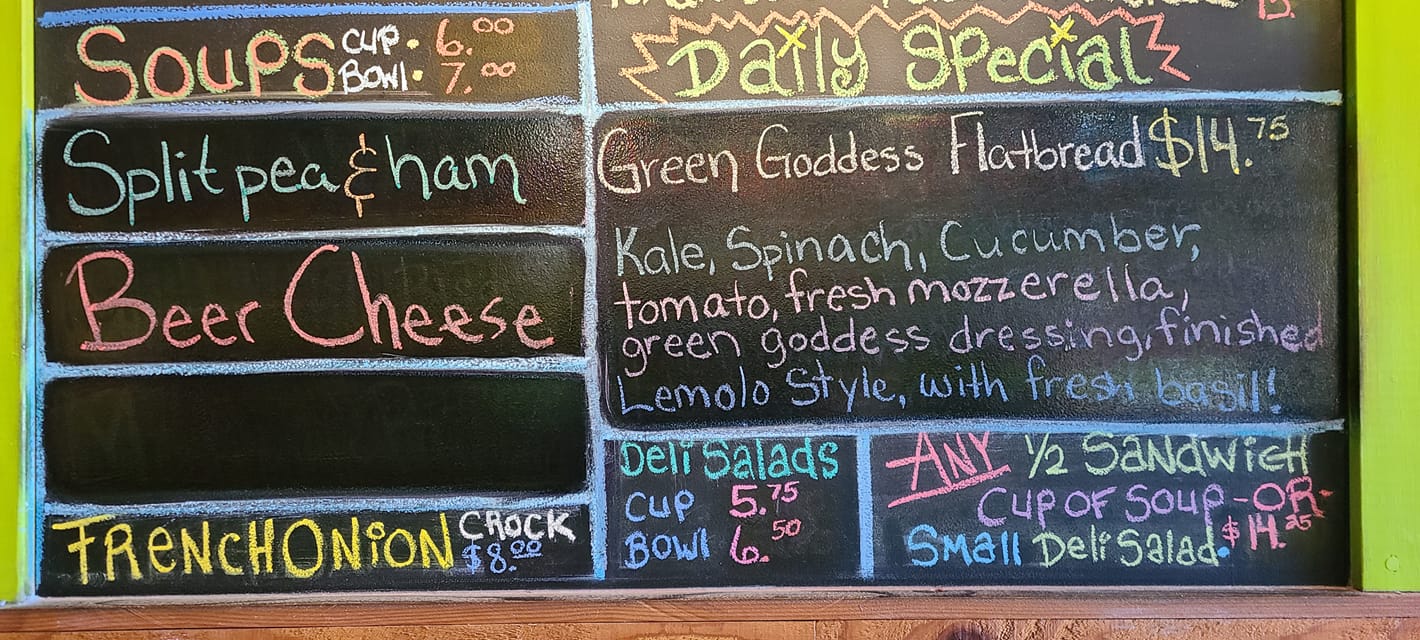 Soups CUP • 6.00
BOWl • 7.00
Split pea & ham
Beer Cheese
FRENCH ONiON CROCK
$8.00
Daily Special
Green Goddess Flatbread $14.75
Kale, Spinach, Cucumber,
tomato, fresh mozzerella,
green goddess dressing, finished
Lemolo Style, with fresh basil!
Deli Salads
CUP 5.75
BOWl 6.50
ANY 1/2 SANdWiCH
CUP OF SOUP -OR-
SMall Deli Salad. $14.25